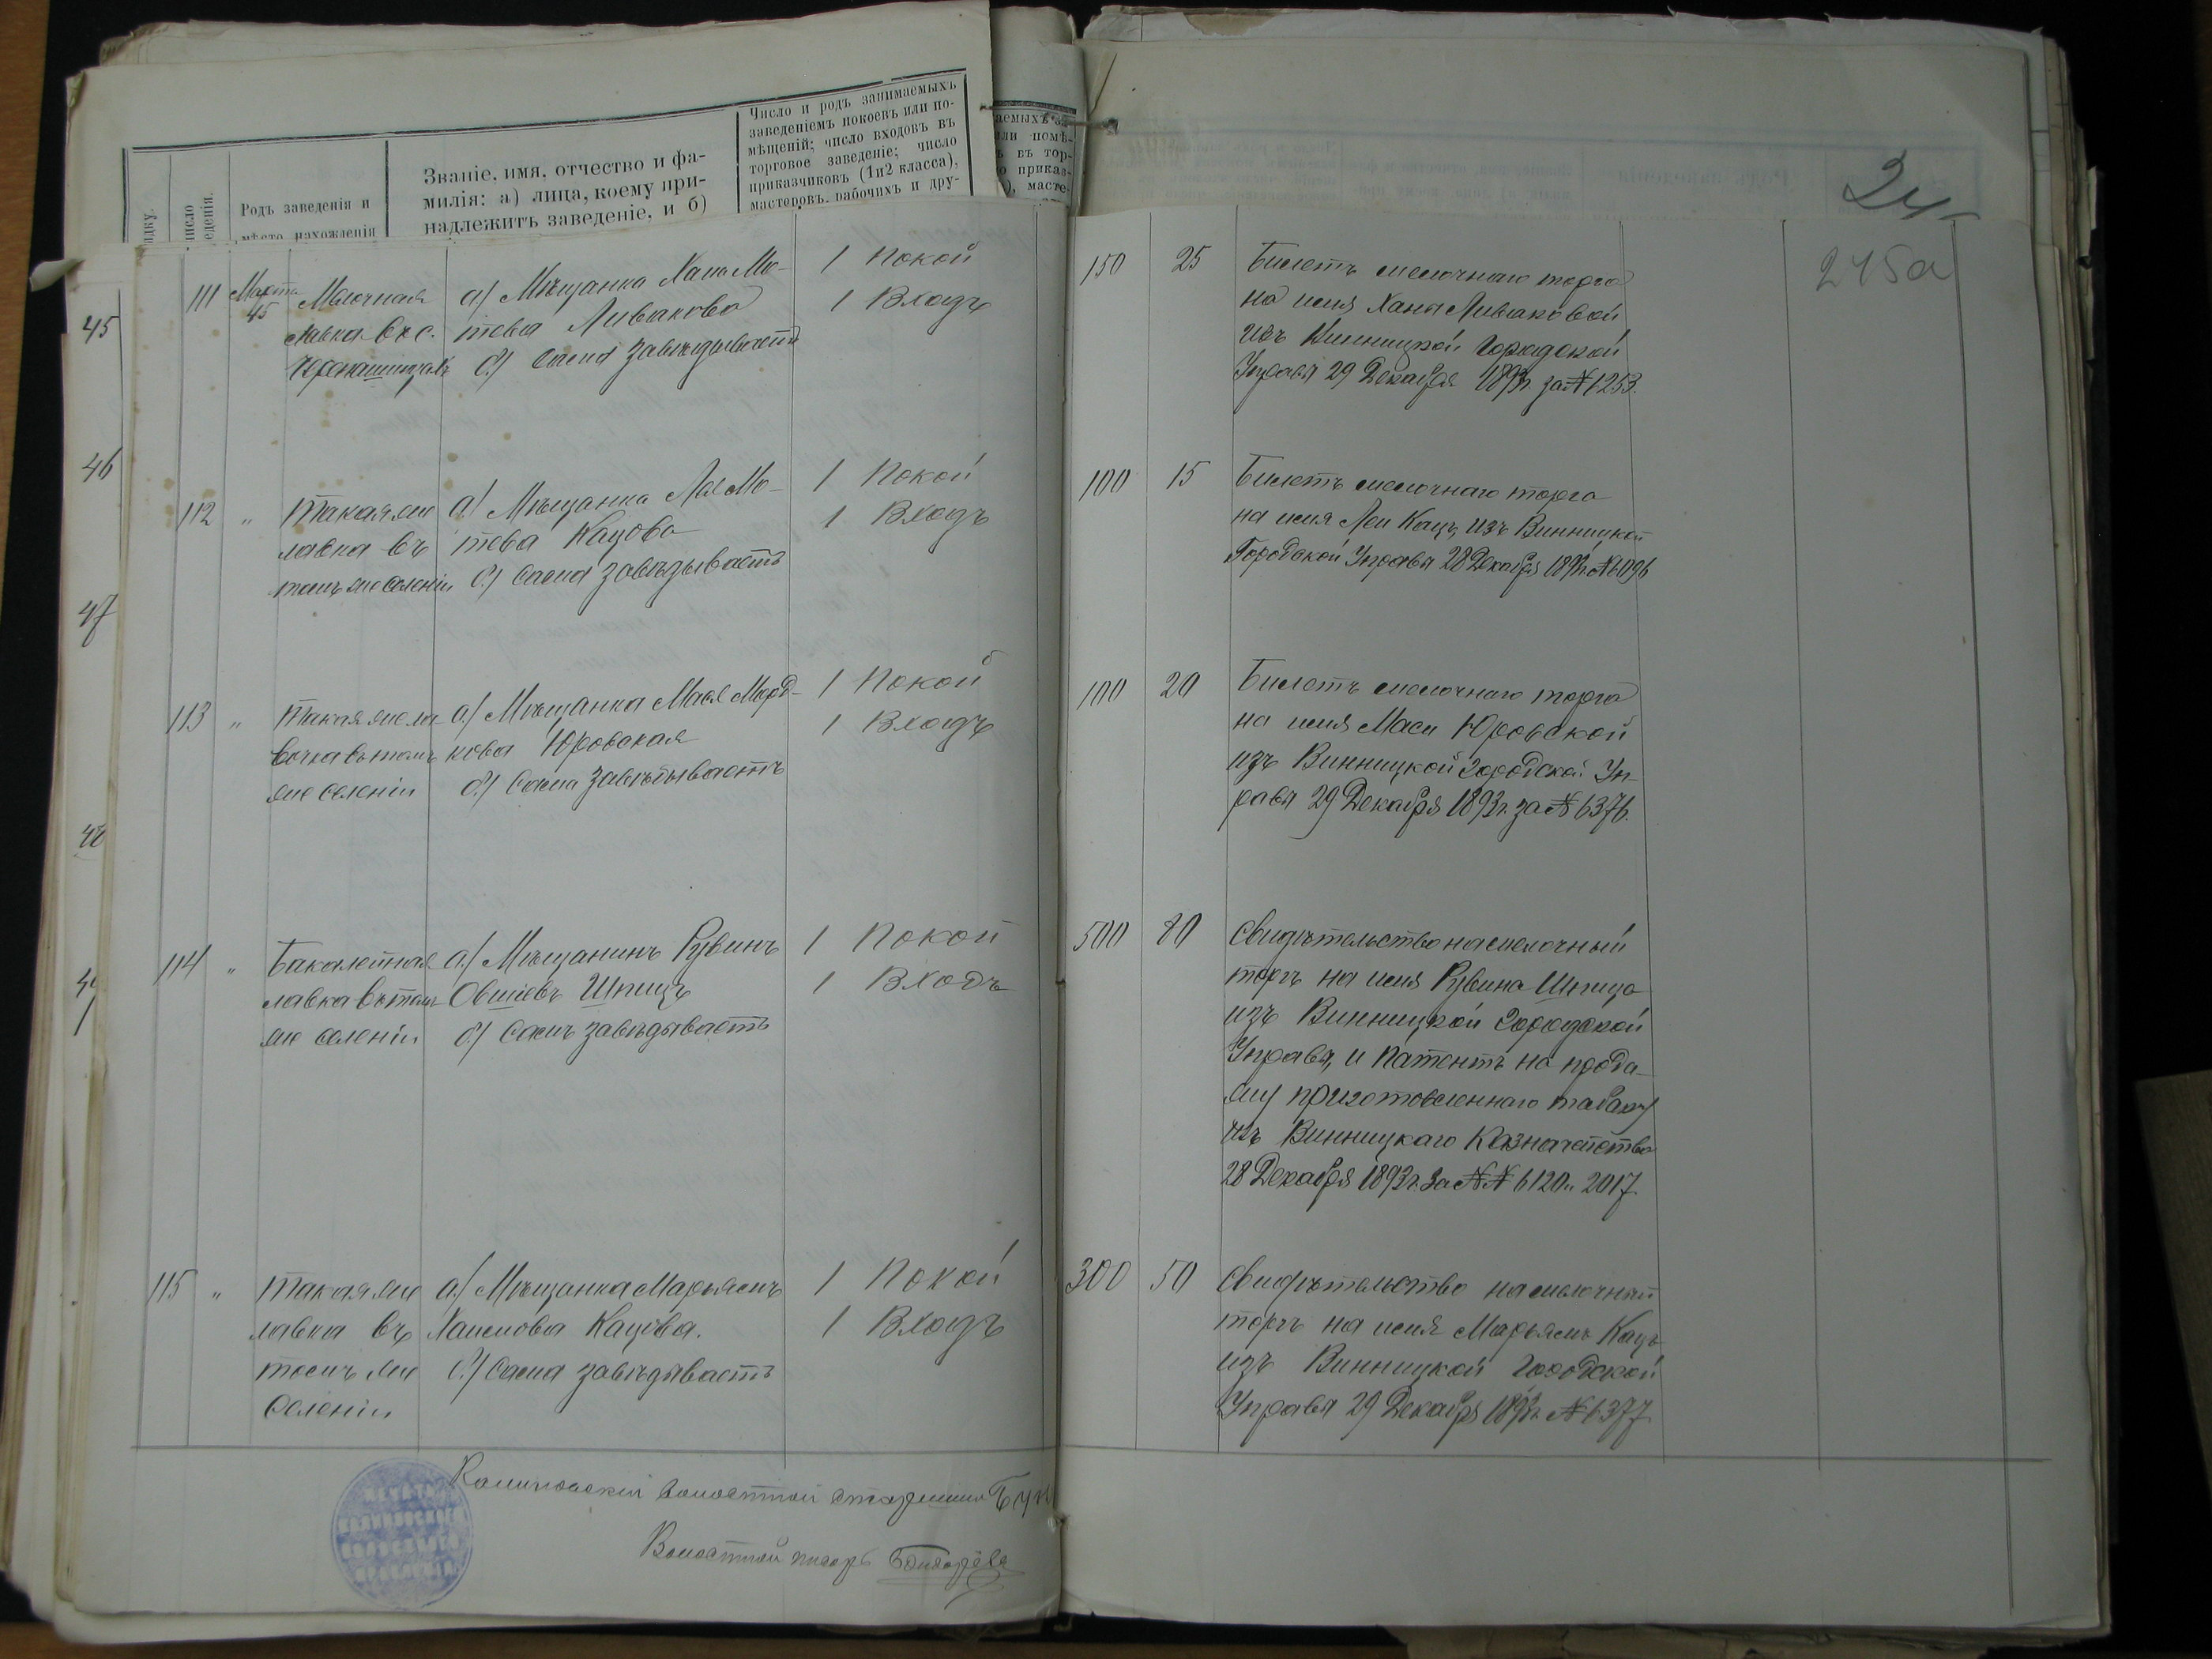 Родъ заведенія и
мѣсто нахожденія
Званіе, имя, отчество и фа-
милія: а) лица, коему при-
надлежитъ заведеніе, и б)
Число и родъ занимаемыхъ
заведеніемъ покоевъ или по-
мѣщеній; число входовъ въ
торговое заведеніе; число
приказчиковъ (1и2 класса),
мастеровъ, рабочихъ и дру-
245а
45
46
47
48
111 Марта 15 Мелочная
лавка въ с.
а) Мѣщанка Хана Мо-
шева Ливакова
б) Сама завѣдываетъ
1 Покой
1 Входъ
150 25 Билетъ мелочнаго торга
на имя Ханы Ливаковой
изъ Винницкой Городской
Управы 29 Декабря 1893г. за № 6253.
112 " Такая же
лавка въ
томъ же селеніи
а) Мѣщанка Лея Мо-
шева Кацова
б) Сама завѣдываетъ
1 Покой
1 Входъ
100 15 Билетъ мелочнаго торга
на имя Леи Кацъ, изъ Винницкой
Городской Управы 28 Декабря 1893г. № 6096
113 " Такая же ла
вочка въ томъ
же селеніи
а) Мѣщанка Мася Морд-
кова Юровская
б) Сама завѣдываетъ
1 Покой
1 Входъ
100 20 Билетъ мелочнаго торга
на имя Маси Юровской
изъ Винницкой Городской Уп-
равы 29 Декабря 1893г. за № 6376.
114 " Бакалейная
лавка въ томъ
же селеніи
а) Мѣщанинъ Рувинъ
Овшіевъ Шпицъ
б) Самъ завѣдываетъ
1 Покой
1 Входъ
500 80 Свидѣтельство на мелочный
торгъ на имя Рувина Шпица
изъ Винницкой Городской
Управы, и патентъ на прода-
жу приготовленнаго табаку
изъ Винницкаго Казначейства
28 Декабря 1893г. за №№ 6120 и 2017
115 " Такая же
лавка въ
томъ же
селеніи
а) Мѣщанка Марьямъ
Хаимова Кацова.
б) Сама завѣдываетъ
1 Покой
1 Входъ
300 50 Свидѣтельство на мелочный
торгъ на имя Марьямъ Кацъ
изъ Винницкой Городской
Управы 29 Декабря 1893г. № 6377
Калиновскій волостной старшина
Волостной писарь
ПЕЧАТЬ
КАЛИНОВСКАГО
ВОЛОСТНАГО
ПРАВЛЕНІЯ